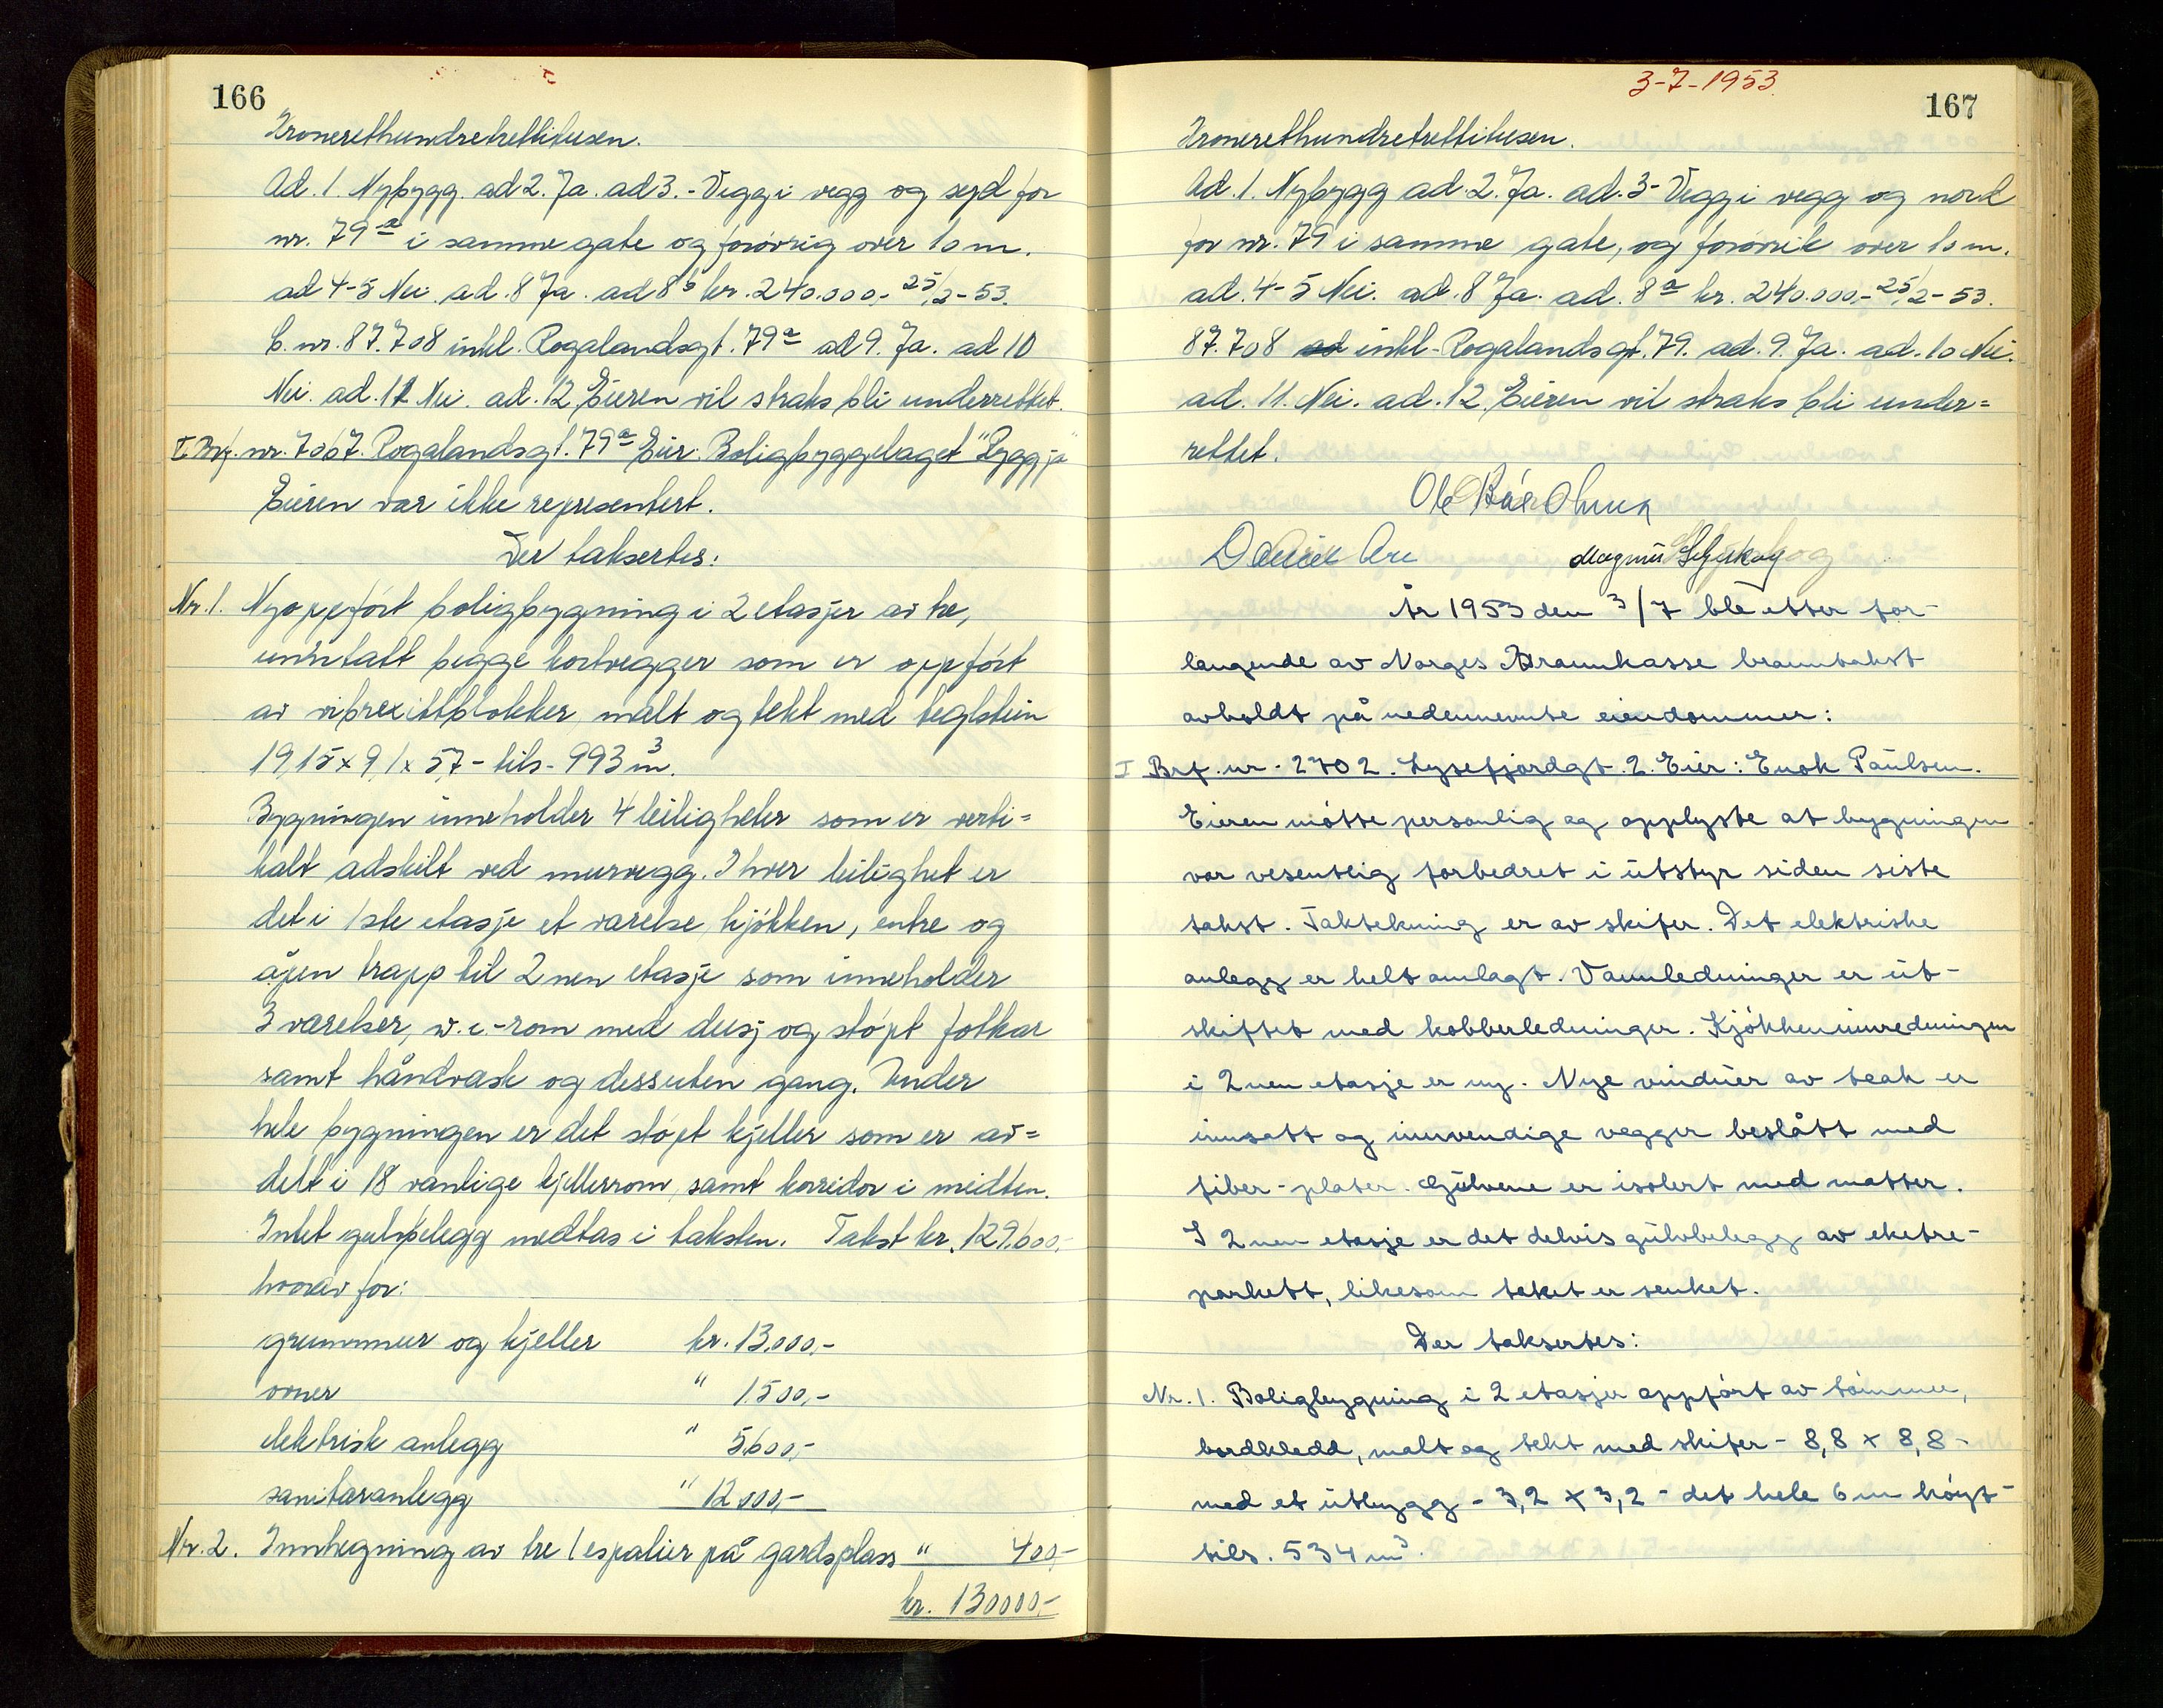 166
Kronerethundretrettitusen.
Ad. 1. Nybygg. ad 2. Ja. ad 3. - Vegg i vegg og syd for
nr. 79a i samme gate og forövrig over 10 m.
ad 4-5 Nei. ad. 8 Ja. ad 8b kr. 240.000,- 25/2-53.
b. nr. 87.708 inkl. Rogalandsgt. 79a ad 9. Ja. ad 10
Nei. ad. 11 Nei. ad. 12 Eieren vil straks bli underrettet.
I Brf. nr. 7067. Rogalandsgt. 79a Eier: Boligbyggelaget "Byggja"
Eieren var ikke representert.
Der taksertes:
Nr. 1. Nyoppfört boligbygning i 2 etasjer av tre,
unntatt begge kortvegger som er oppfört
av vibrexittblokker malt og tekt med teglstein
19,15 x 9,1 x 5,7 - tils - 993 m3.
Bygningen inneholder 4 leiligheter som er verti=
kalt adskilt ved murvegg. I hver leilighet er
det i 1ste etasje et værelse kjökken, entre og
åpen trapp til 2nen etasje som inneholder
3 værelser, w.c.-rom med dusj og stöpt fotkar
samt håndvask og dessuten gang. Under
hele bygningen er det stöpt kjeller som er av=
delt i 18 vanlige kjellerrom, samt korridor i midten.
Intet gulvbelegg medtas i taksten. Takst kr. 129.600,-
hvorav for:
grunnmur og kjeller kr. 13.000,-
ovner " 1.500,-
elektrisk anlegg " 5.600,-
sanitæranlegg " 12.000,-
Nr. 2. Innhegning av tre / espalier på gardsplass " 400,-
kr. 130000,-
3-7-1953
167
Kronerethundretrettitusen.
Ad. 1. Nybygg ad. 2. Ja. ad. 3 - Vegg i vegg og nord
for nr. 79 i samme gate, og forövrik over 10 m.
ad. 4-5 Nei. ad. 8 Ja. ad. 8a kr. 240.000,- 25/2-53.
87.708 ad inkl. Rogalandsgt. 79. ad. 9. Ja. ad. 10 Nei.
ad. 11. Nei. ad. 12. Eieren vil straks bli under=
rettet.
Magnus
År 1953 den 3/7 ble etter for-
langende av Norges Brannkasse branntakst
avholdt på nedennevnte eiendommer:
I Brf. nr. 2702. Lysefjordgt. 2. Eier: Enok Paulsen.
Eieren mötte personlig og opplyste at bygningen
var vesentlig forbedret i utstyr siden siste
takst. Taktekning er av skifer. Det elektriske
anlegg er helt omlagt. Vannledninger er ut-
skiftet med kobberledninger. Kjökkeninnredningen
i 2nen etasje er ny. Nye vinduer av teak er
innsatt og innvendige vegger beslått med
fiber-plater. Gulvene er isolert med matter.
I 2nen etasje er det delvis gulvbelegg av eketre-
parkett, likesom taket er senket.
Der taksertes:
Nr. 1. Boligbygning i 2 etasjer oppfört av tömmer,
bordkledd, malt og tekt med skifer - 8,8 x 8,8 -
med et utbygg - 3,2 x 3,2 - det hele 6 m höyt -
tils. 534 m3.